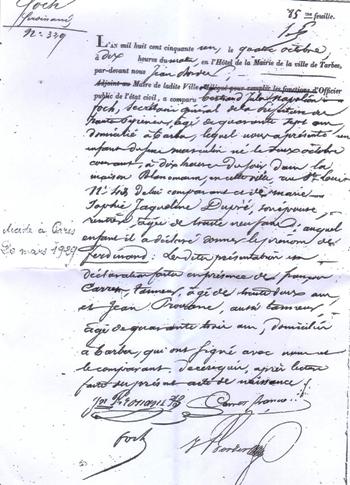 Foch
ferdinand
N:- 349
75 me feuille.
L'AN mil huit cent cinquante un, le quatre octobre, à
dix heures du matin, en l'Hôtel de la Mairie de la ville de Tarbes,
par-devant nous
Adjoint au Maire de ladite Ville délégué pour remplir les fonctions d'Officier
public de l'état civil, a comparu Bertrand Jules Napoléon
Foch, Secrétaire général de la préfecture des
hautes Pyrénées, âgé de quarante sept ans,
domicilié à Tarbes, lequel nous a présenté un
enfant du sexe masculin né le deux octobre
courant, à dix heures du soir, dans la
maison en cette ville, rue St Louis
N: de lui comparant et de marie
Sophie Jacqueline Dupré, son épouse,
rentière, âgée de trente neuf ans; auquel
enfant il a déclaré donner le prénom de
ferdinand. Lesdites présentation et
déclaration faites en présence de françois
Carrere, tanneur, âgé de trente deux ans,
et Jean aussi tanneur,
âgé de quarante trois ans, domiciliés
à Tarbes, qui ont signé avec nous et
le comparant, après lecture
faite du présent acte de naissance.
Foch
Marié à Paris
20 mars 1929